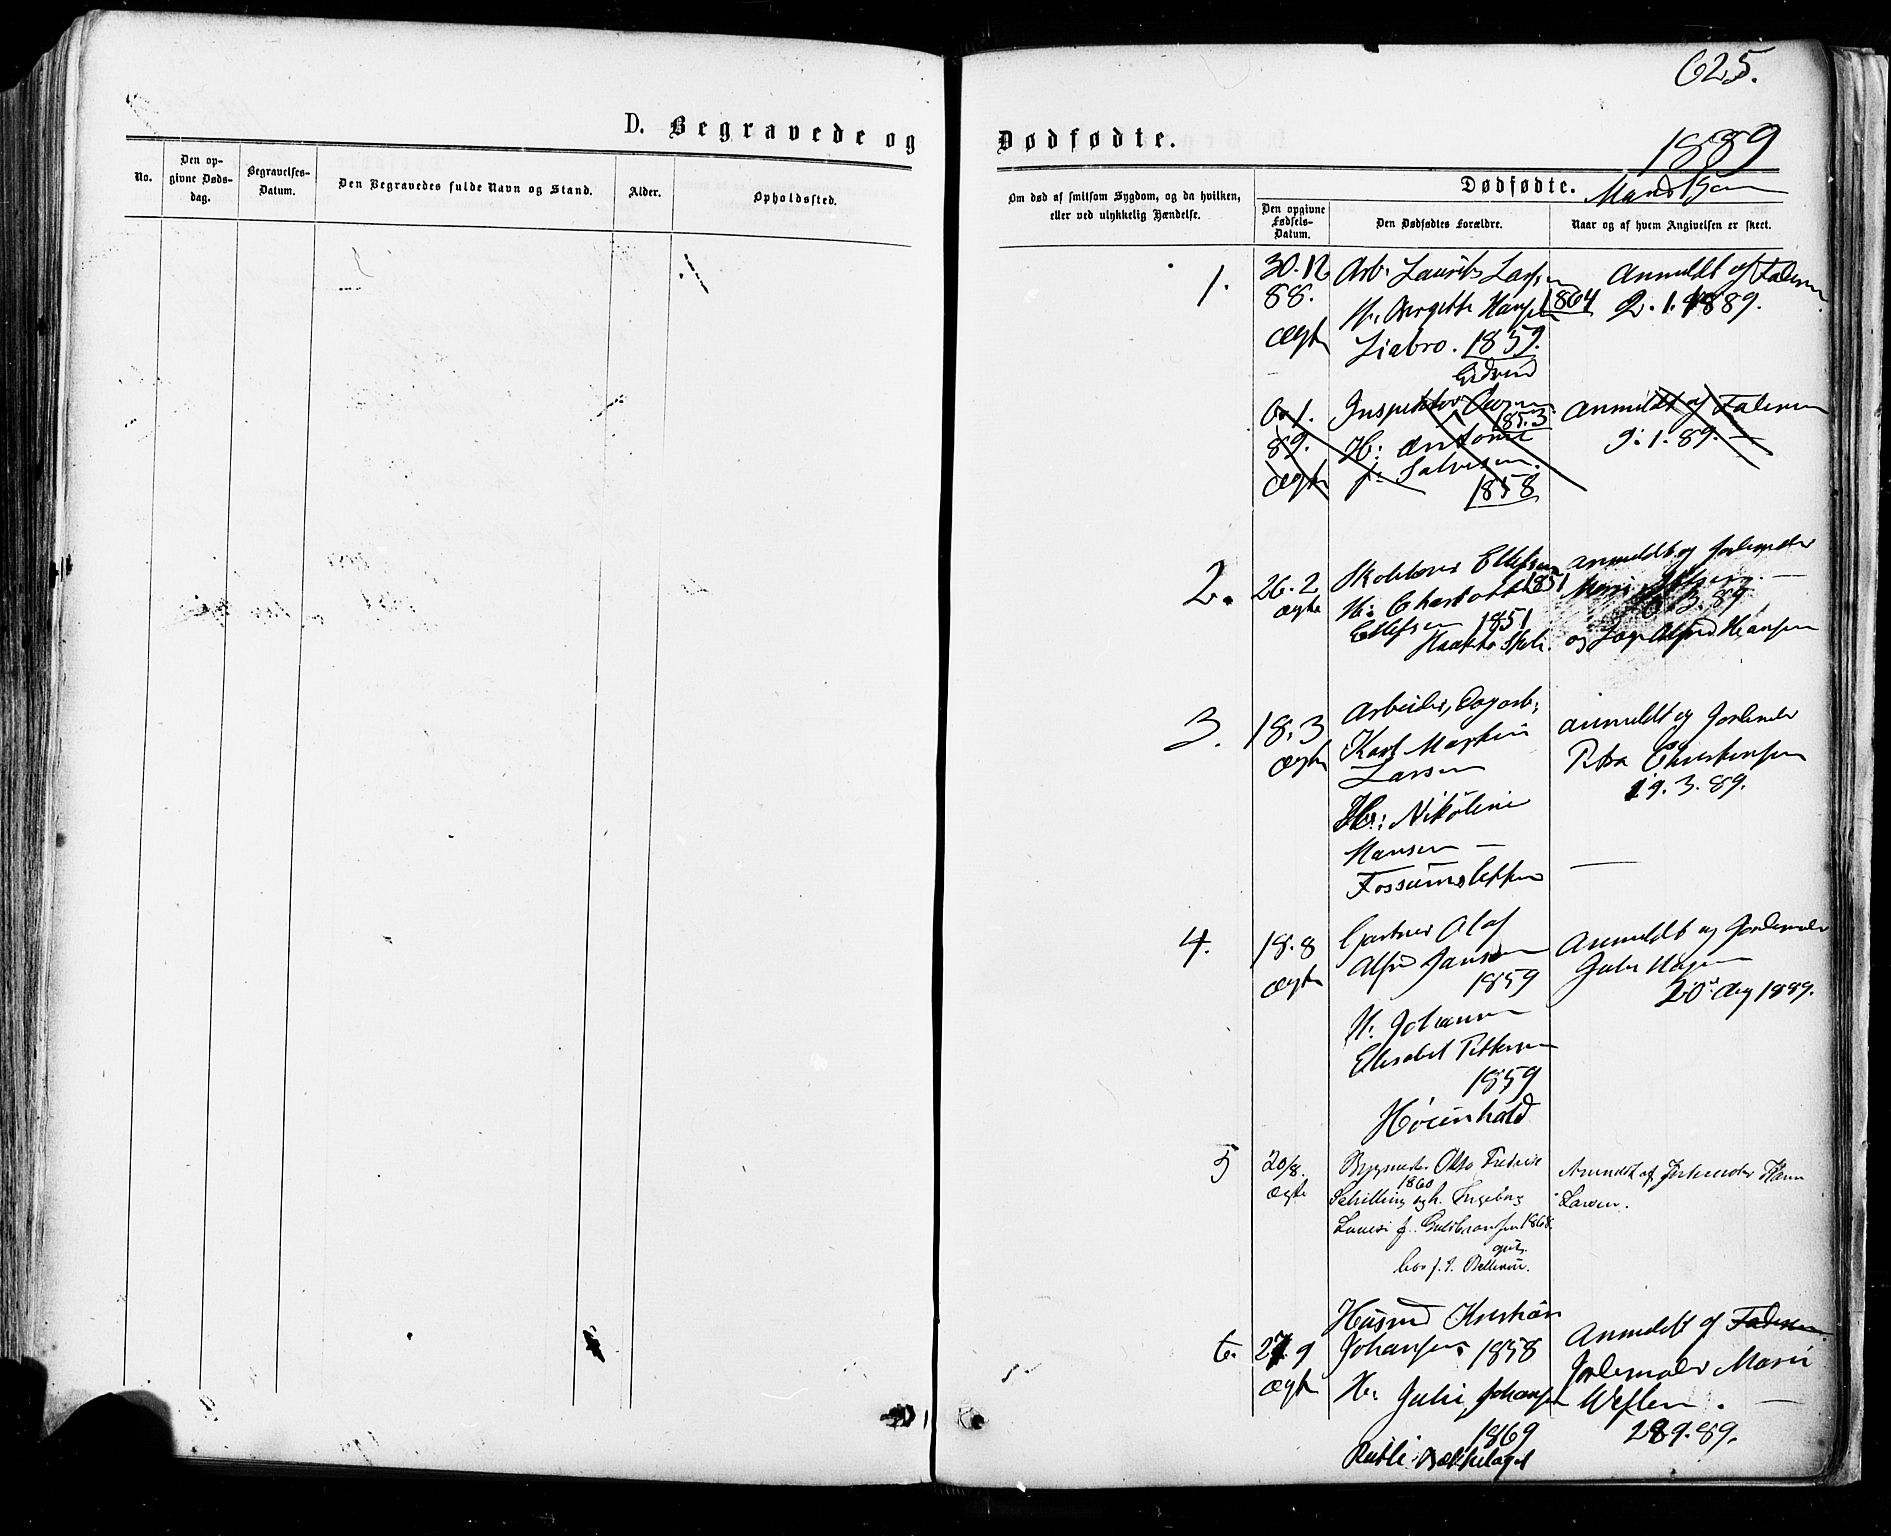 625.
D. Begravede og Dødfødte.
1889
Mandkjøn
No.
Den op-
givne Døds-
dag.
Begravelses-
Datum.
Den Begravedes fulde Navn og Stand.
Alder.
Opholdssted.
Om død af smitsom Sygdom, og da hvilken,
eller ved ulykkelig Hændelse.
Dødfødte.
Den opgivne
Fødsels-
Datum.
Den Dødfødtes Forældre.
Naar og af hvem Angivelsen er skeet.
1.
30.12
88.
Ægte
Arb. Laurits Larsen
1864
H: Hansen
Liabro. 1859.
Anmeldt af Faderen
2.1.1889.
6.1.
89.
Ægte
Inspektør
1853
H: Antonie
f: Salvesen.
1858
Anmeldt af Faderen
9.1.89.
2.
26.2
ægte
Skolelærer Ellefsen
1851
H: Charlotte
Ellefsen 1851
Skole.
Anmeldt af Jordemoder
3.89
og Alfred Hansen
3.
18.3
Ægte
Arbeider, Dagarb:
Karl Martin
Larsen
H: Nikoline
Hansen
Fossumsløkken
Anmeldt af Jordemoder
Petra Christensen
19.3.89.
4.
18.8
Ægte
Gartner Olaf
Alfred Jansen
1859
H: Johanne
Elisabet Pettersen
1859
Anmeldt af Jordemoder
20de Aug 1889.
5
20/8.
Ægte
Bygmester Otto Fredrik
1860
Schilling og h. Ingeborg
Louise f. Guldbransen 1868.
Bellevue.
Anmeldt af Jordemoder Hanna
Larsen.
6.
27.9
Ægte
Husmd Kristian
Johansen 1858
H: Julie Johansen
1869
Bækkelaget
Anmeldt af Faderen
Jordemoder Marie
Weflen.
28.9.89.